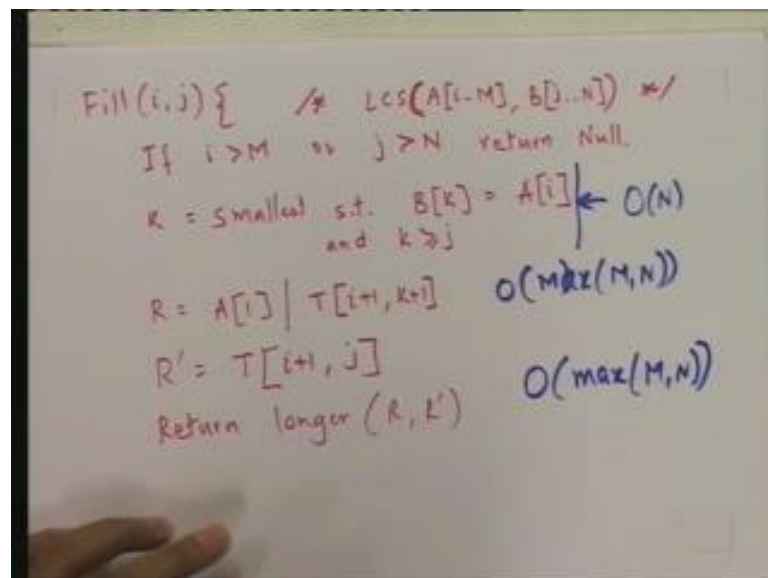 Fill(i,j) { /* LCS(A[i-M], B[j..N]) */
If i>M or j>N return Null.
K = smallest s.t. B[K] = A[i] ← O(N)
and k ≥ j
R = A[i] | T[i+1, K+1] O(max(M,N))
R' = T[i+1, j] O(max(M,N))
Return longer (R, R')